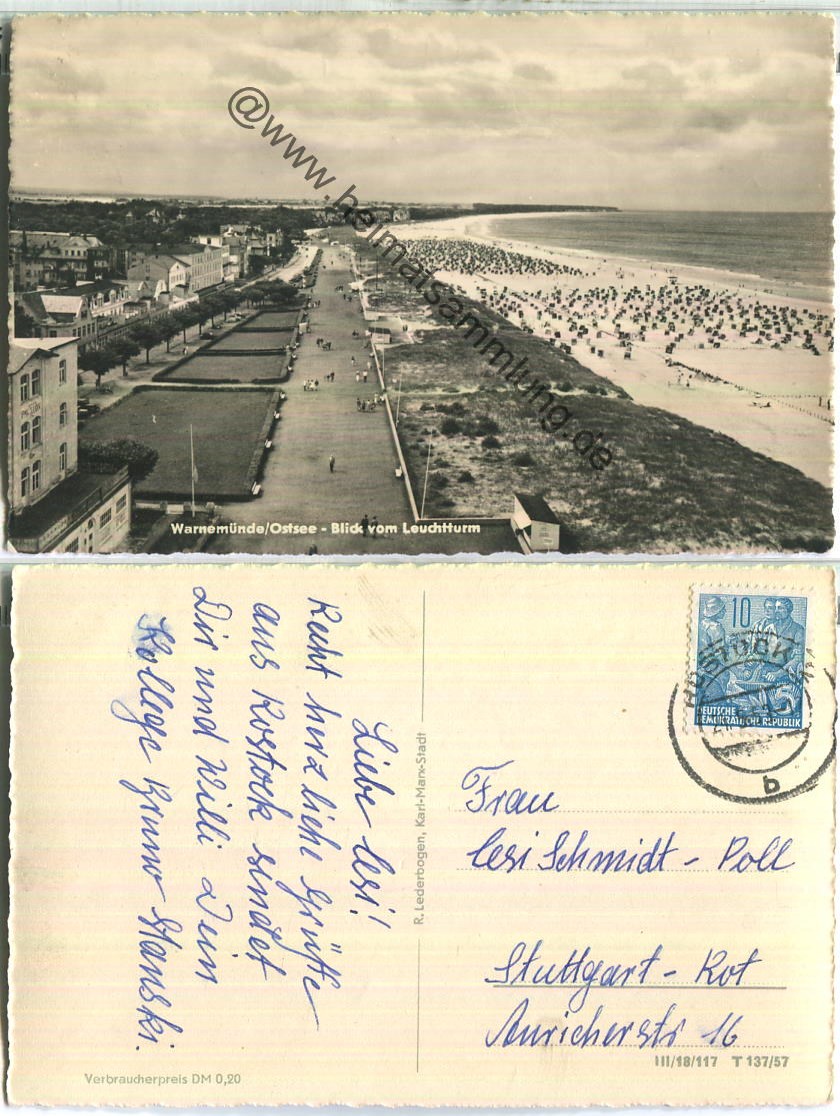 @www.heimatsammlung.de
PAVILLON
Warnemünde/Ostsee - Blick vom Leuchtturm
Liebe Lesi!
Recht herzliche Grüße
aus Rostock sendet
Dir und Willi Dein
Kollege Bruno Stanski.
R. Lederbogen, Karl-Marx-Stadt
Verbraucherpreis DM 0,20
10
DEUTSCHE
DEMOKRATISCHE REPUBLIK
ROSTOCK
b
Frau
Lesi Schmidt - Poll
Stuttgart - Rot
Auricherstr 16
III/18/117 T 137/57